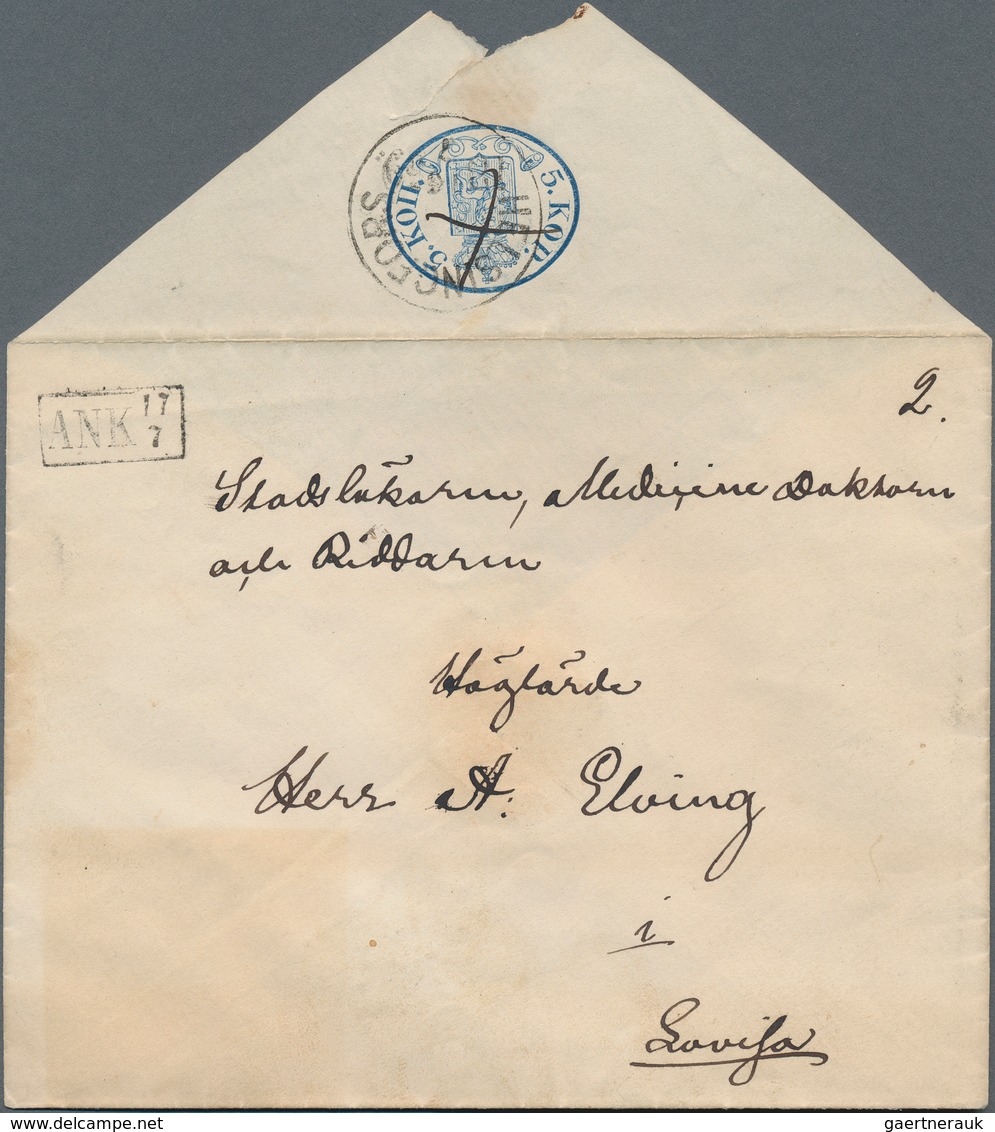 5. KOП.
5. KOP.
HELSINGFORS
ANK 17/7
2.
Stadsläkaren, Medicine Doktorn
och Riddaren
Höglärde
Herr A. Elving
i
Lovisa
gaertnerauk